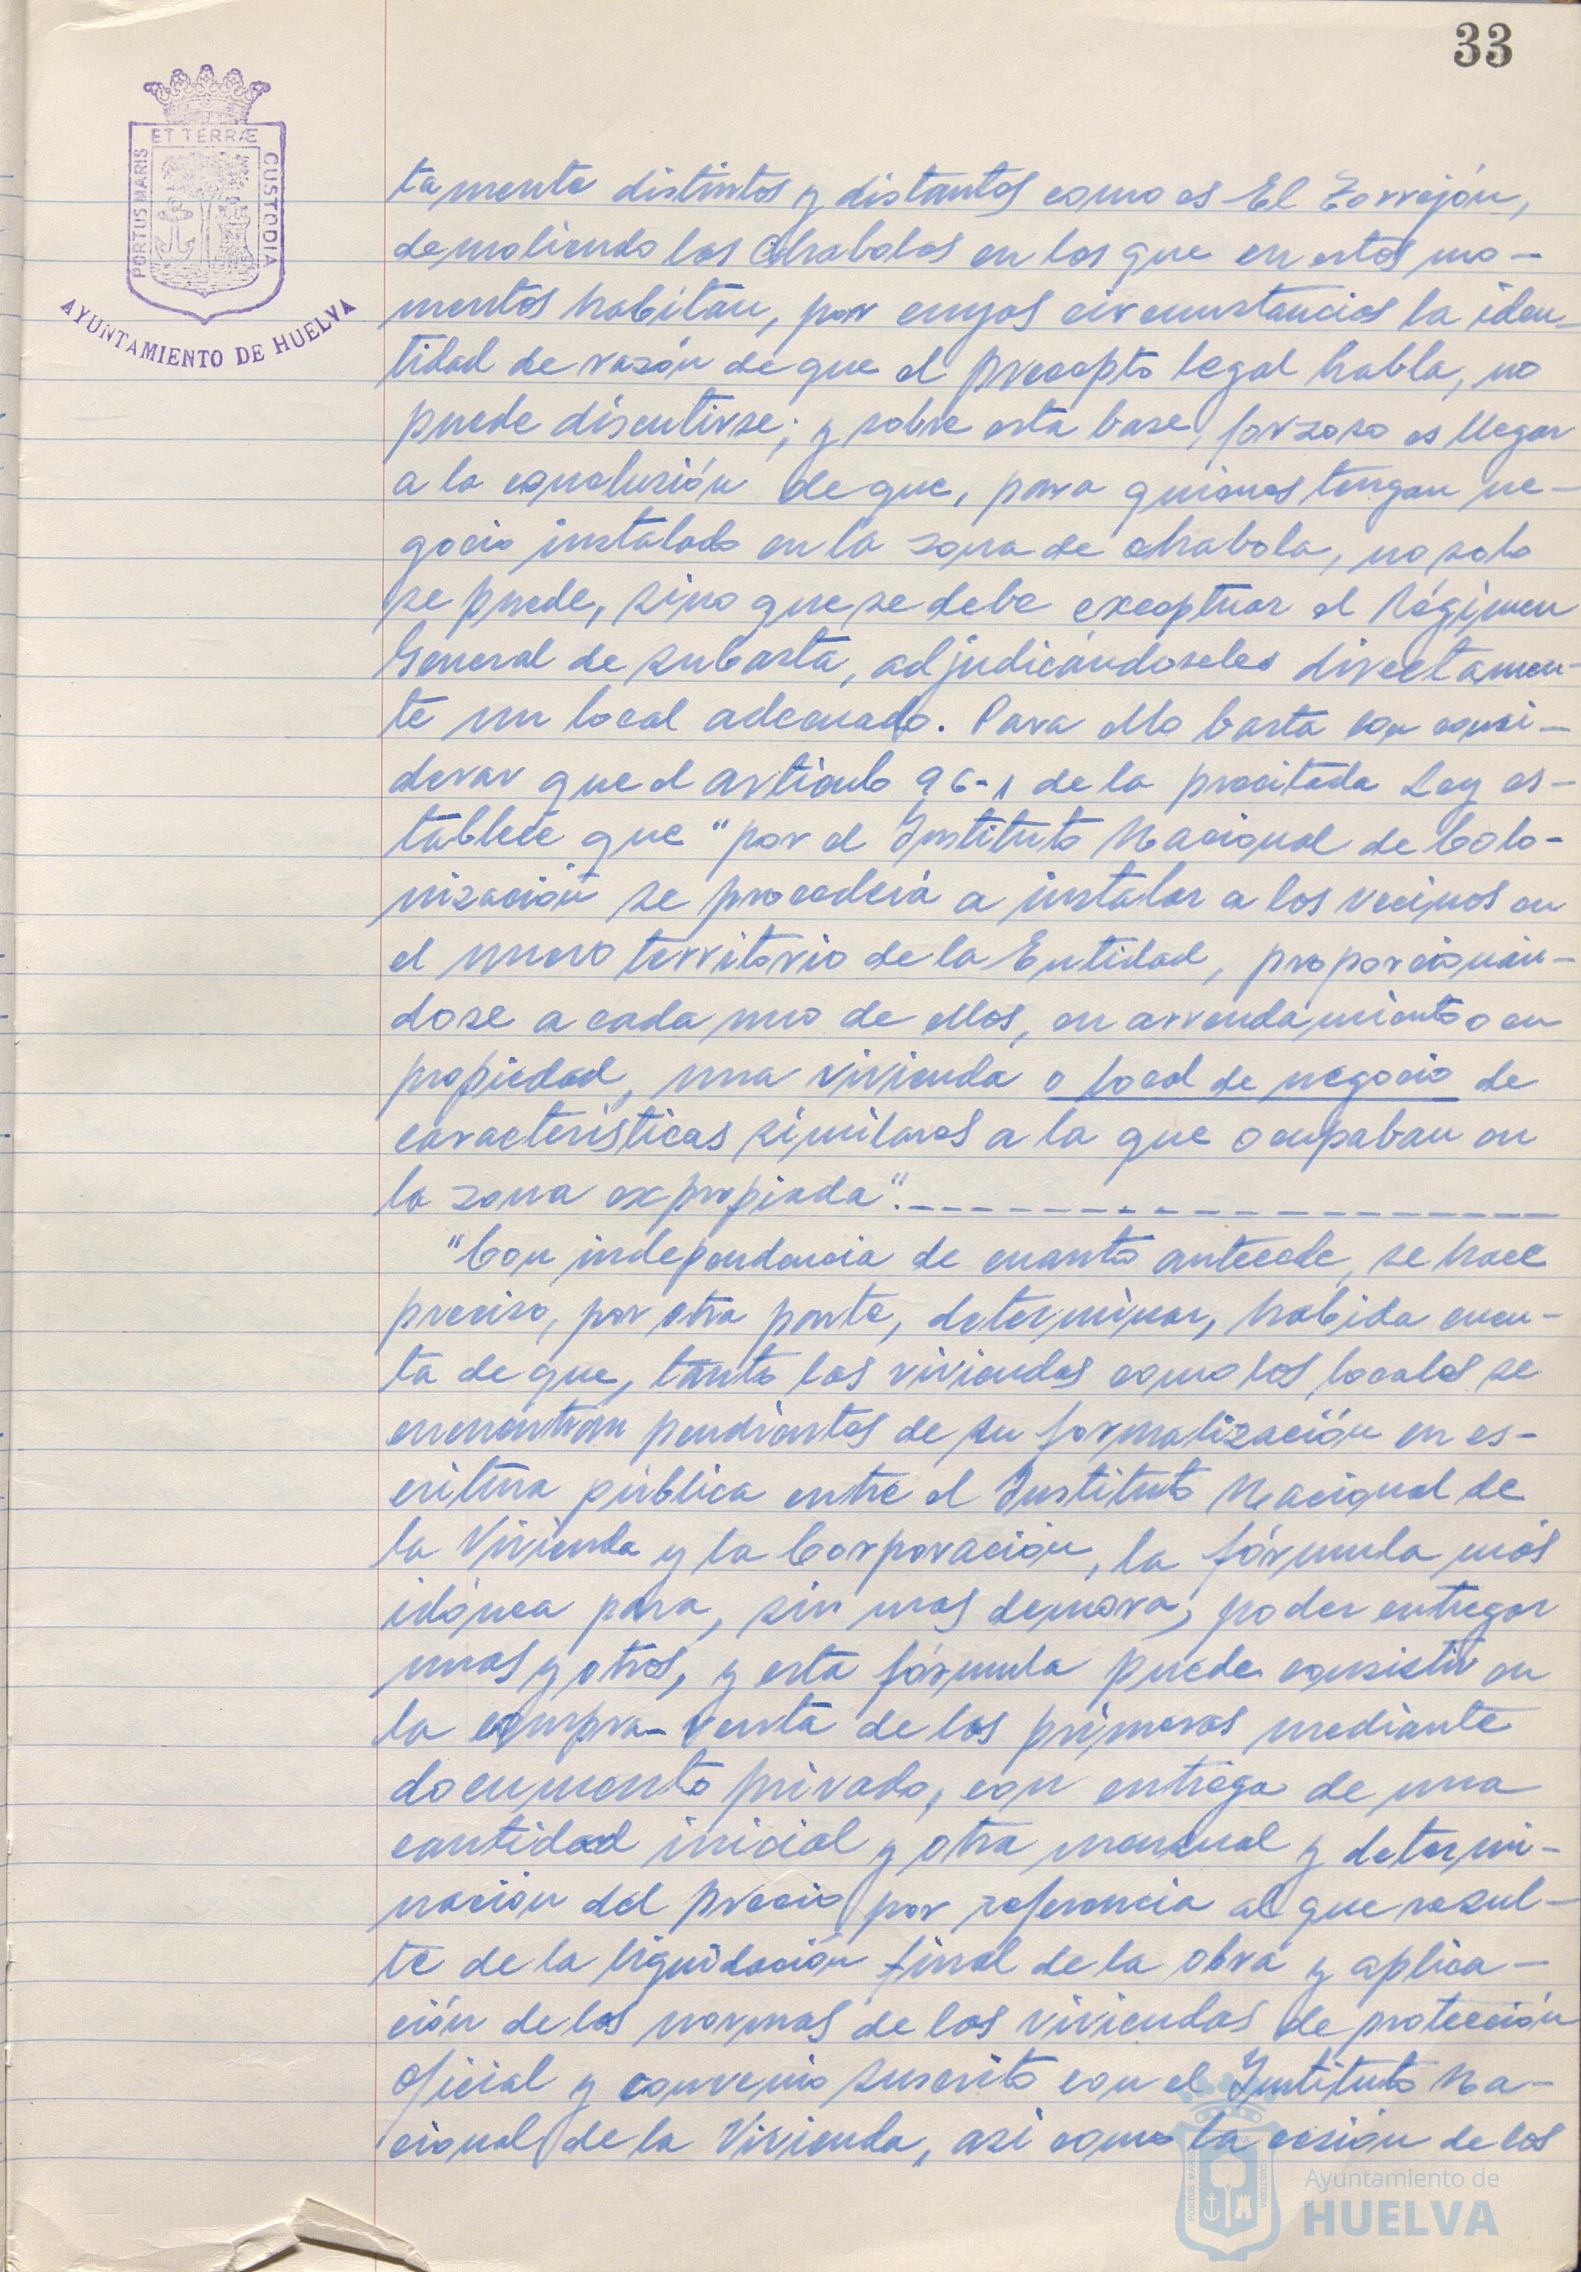 33
ET TERRÆ
PORTUS MARIS
CUSTODIA
AYUNTAMIENTO DE HUELVA
tamente distintos y distantes como es El Torrejón,
demoliendo las Chabolas en las que en estos mo-
mentos habitan, por cuyas circunstancias la iden-
tidad de razón de que el precepto legal habla, no
puede discutirse; y sobre esta base, forzoso es llegar
a la conclusión de que, para quienes tengan ne-
gocio instalado en la zona de chabola, no solo
se puede, sino que se debe exceptuar el Régimen
General de subasta, adjudicándoseles directamen-
te un local adecuado. Para ello basta con consi-
derar que el artículo 96-1 de la precitada Ley es-
tablece que "por el Instituto Nacional de Colo-
nización se procederá a instalar a los vecinos en
el nuevo territorio de la Entidad, proporcionán-
dose a cada uno de ellos, en arrendamiento o en
propiedad, una vivienda o local de negocio de
características similares a la que ocupaban en
la zona expropiada".
"Con independencia de cuanto antecede, se hace
preciso, por otra parte, determinar, habida cuen-
ta de que, tanto las viviendas como los locales se
encuentran pendientes de su formalización en es-
critura pública entre el Instituto Nacional de
la Vivienda y la Corporación, la fórmula más
idónea para, sin mas demora, poder entregar
unas y otros, y esta fórmula puede consistir en
la compra-venta de las primeras mediante
documento privado, con entrega de una
cantidad inicial y otra mensual y determi-
nación del precio por referencia al que resul-
te de la liquidación final de la obra y aplica-
ción de las normas de las viviendas de protección
Oficial y convenio suscrito con el Instituto Na-
cional de la Vivienda, asi como la cesión de los
Ayuntamiento de
HUELVA